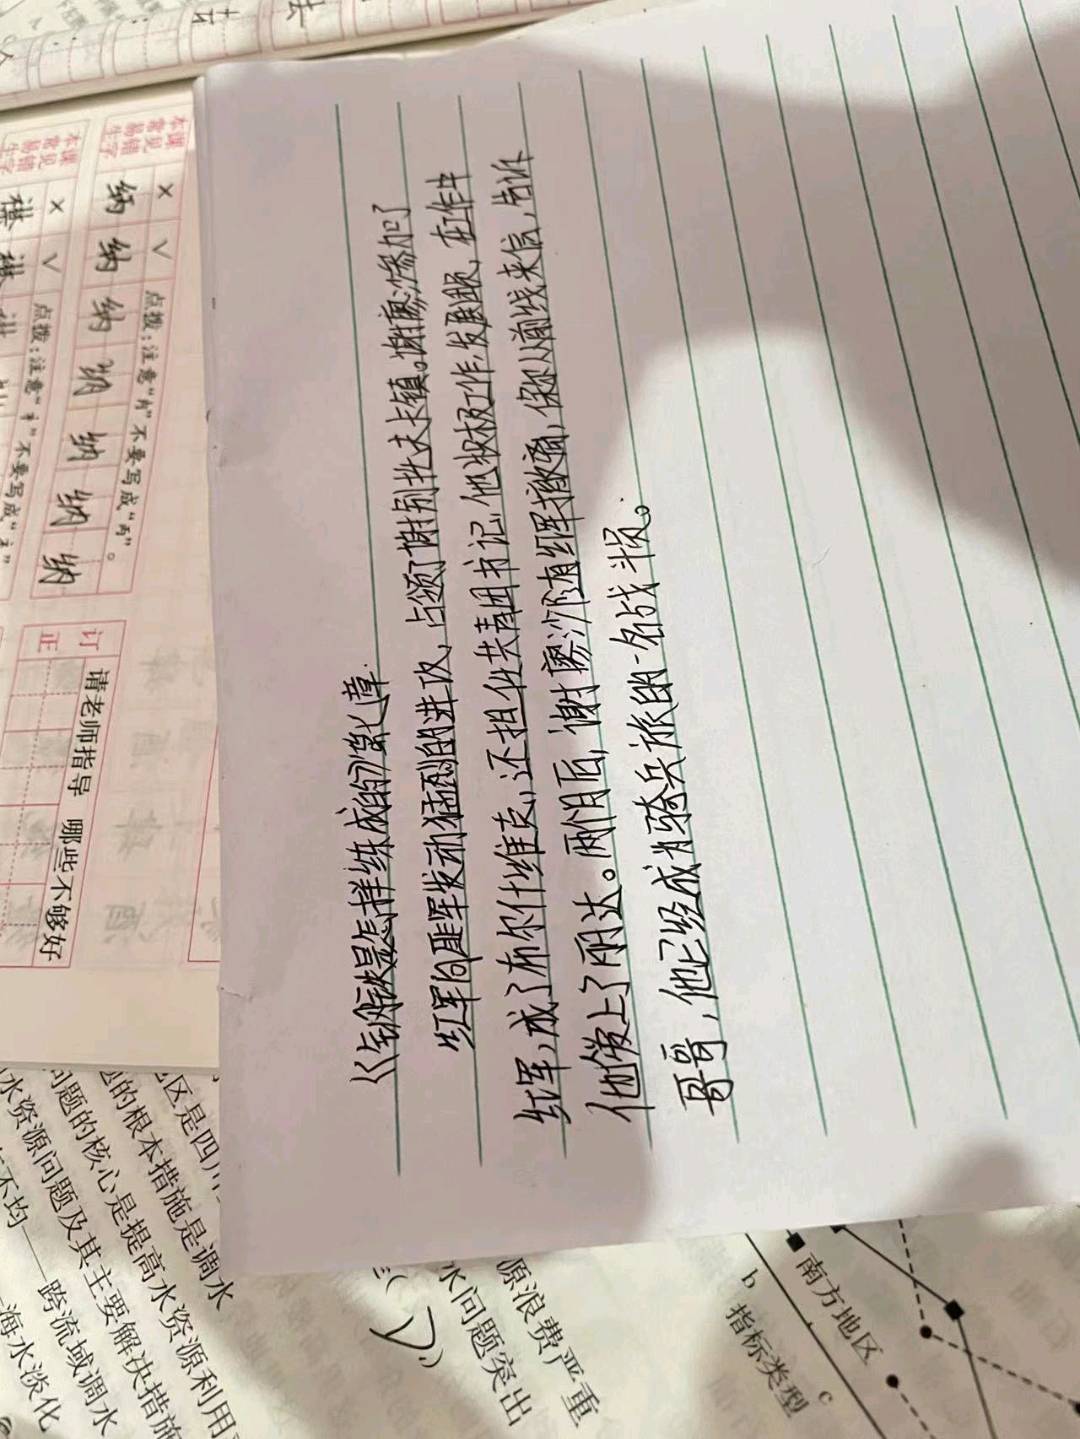 《钢铁是怎样练成的》第七章.
红军向匪军发动猛烈的进攻，占领了谢别托夫卡镇。谢廖沙参加了
红军，成了布尔什维克，还担任共青团书记，他积极工作，发展团员，在工作中
他爱上了丽达。两个月后，谢廖沙随红军撤离，保尔从前线来信，告诉
哥哥，他已经成为骑兵旅的一名战斗员。
本课常见易错字
× √
点拨：注意"内"不要写成"丙"。
纳 纳 纳 纳 纳 纳
订正
请老师指导 哪些不够好
本课常见易错字
× √
点拨：注意
不要写成
区是四川
的根本措施是调水
问题的核心是提高水资源利用
水资源问题及其主要解决措施
不均——跨流域调水
海水淡化
源浪费严重
水问题突出
南方地区
b
指标类型
c